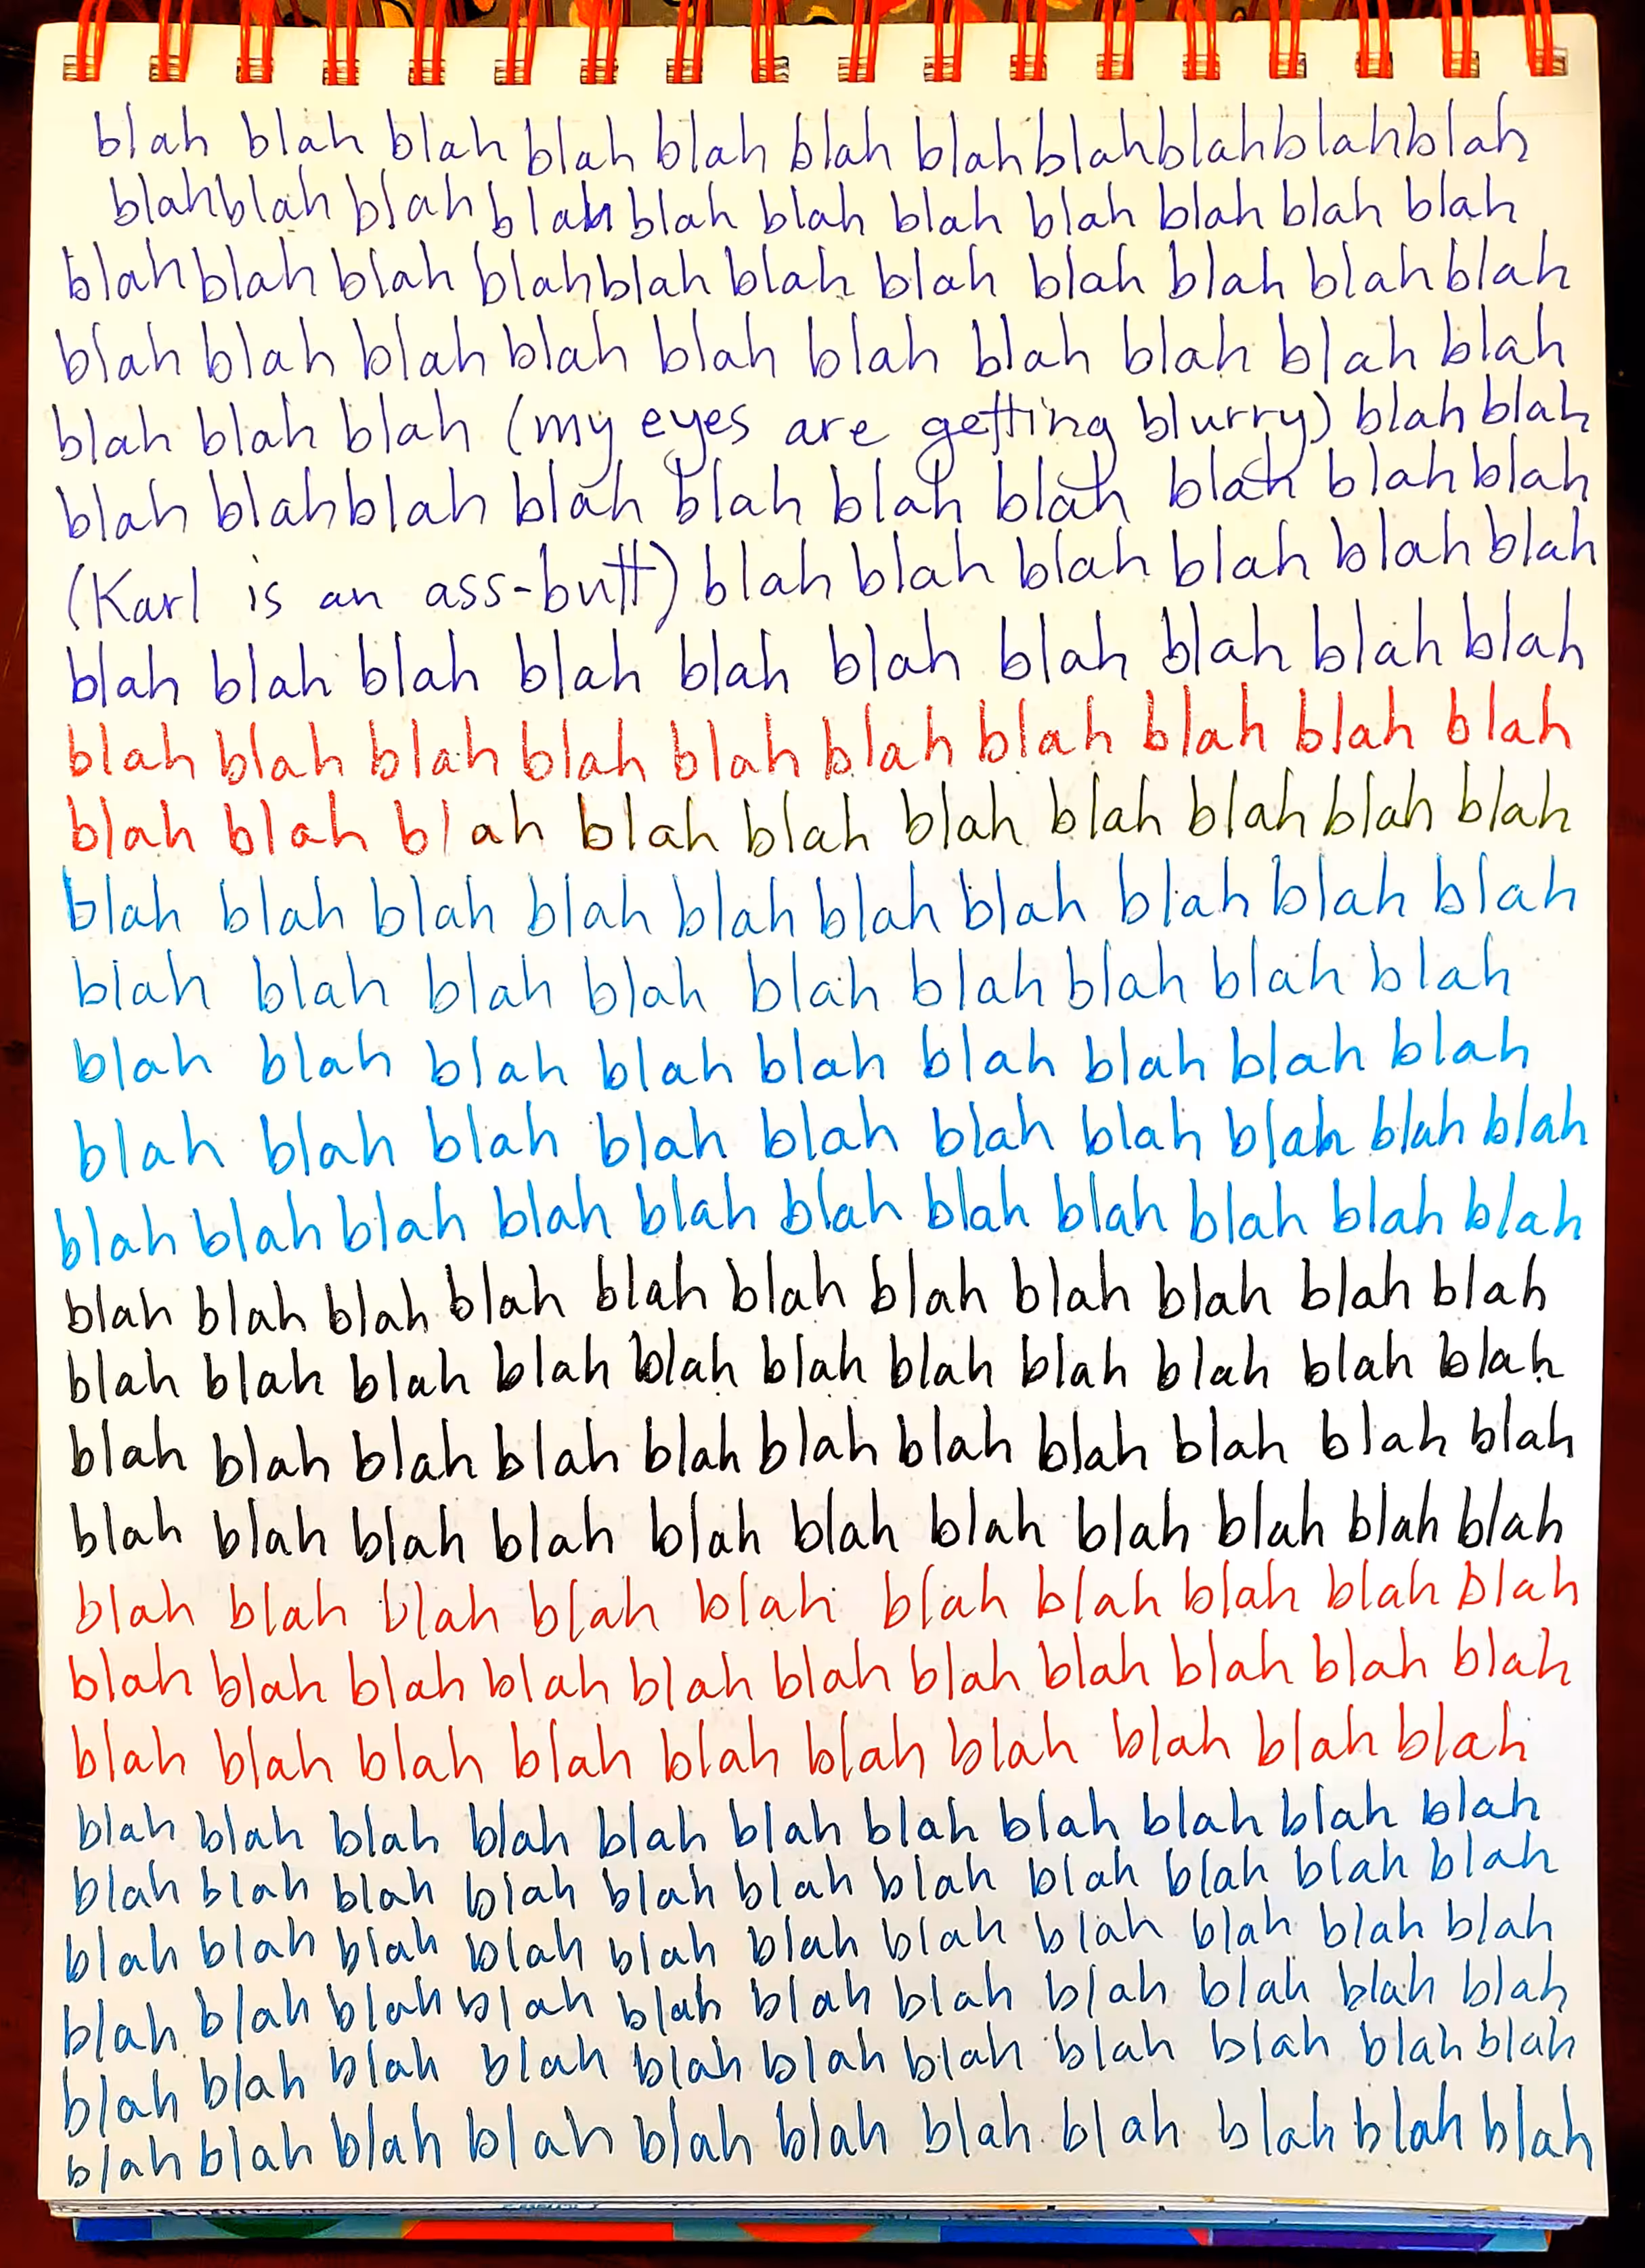 blah blah blah blah blah blah blah blah blah blah blah
blah blah blah blah blah blah blah blah blah blah blah
blah blah blah blah blah blah blah blah blah blah blah
blah blah blah blah blah blah blah blah blah blah
blah blah blah (my eyes are getting blurry) blah blah
blah blah blah blah blah blah blah blah blah blah
(Karl is an ass-butt) blah blah blah blah blah blah
blah blah blah blah blah blah blah blah blah blah
blah blah blah blah blah blah blah blah blah blah
blah blah blah blah blah blah blah blah blah blah
blah blah blah blah blah blah blah blah blah blah
blah blah blah blah blah blah blah blah blah
blah blah blah blah blah blah blah blah blah
blah blah blah blah blah blah blah blah blah blah
blah blah blah blah blah blah blah blah blah blah blah
blah blah blah blah blah blah blah blah blah blah blah
blah blah blah blah blah blah blah blah blah blah blah
blah blah blah blah blah blah blah blah blah blah blah
blah blah blah blah blah blah blah blah blah blah blah
blah blah blah blah blah blah blah blah blah blah
blah blah blah blah blah blah blah blah blah blah blah
blah blah blah blah blah blah blah blah blah blah
blah blah blah blah blah blah blah blah blah blah blah
blah blah blah blah blah blah blah blah blah blah blah
blah blah blah blah blah blah blah blah blah blah blah
blah blah blah blah blah blah blah blah blah blah blah
blah blah blah blah blah blah blah blah blah blah blah
blah blah blah blah blah blah blah blah blah blah blah